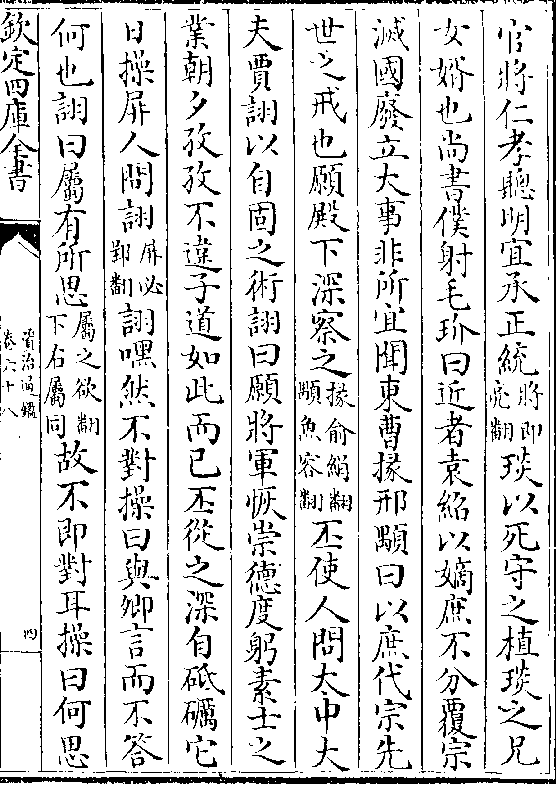 官將仁孝聰明宜承正統將即亮翻琰以死守之植琰之兄
女婿也尚書僕射毛玠曰近者袁紹以嫡庶不分覆宗
滅國廢立大事非所宜聞東曹掾邢顒曰以庶代宗先
世之戒也願殿下深察之掾俞絹翻顒魚容翻丕使人問太中大
夫賈詡以自固之術詡曰願將軍恢崇德度躬素士之
業朝夕孜孜不違子道如此而已丕從之深自砥礪它
日操屏人問詡屏必郢翻詡嘿然不對操曰與卿言而不答
何也詡曰屬有所思屬之欲翻下右屬同故不即對耳操曰何思
欽定四庫全書
資治通鑑
卷六十八
四